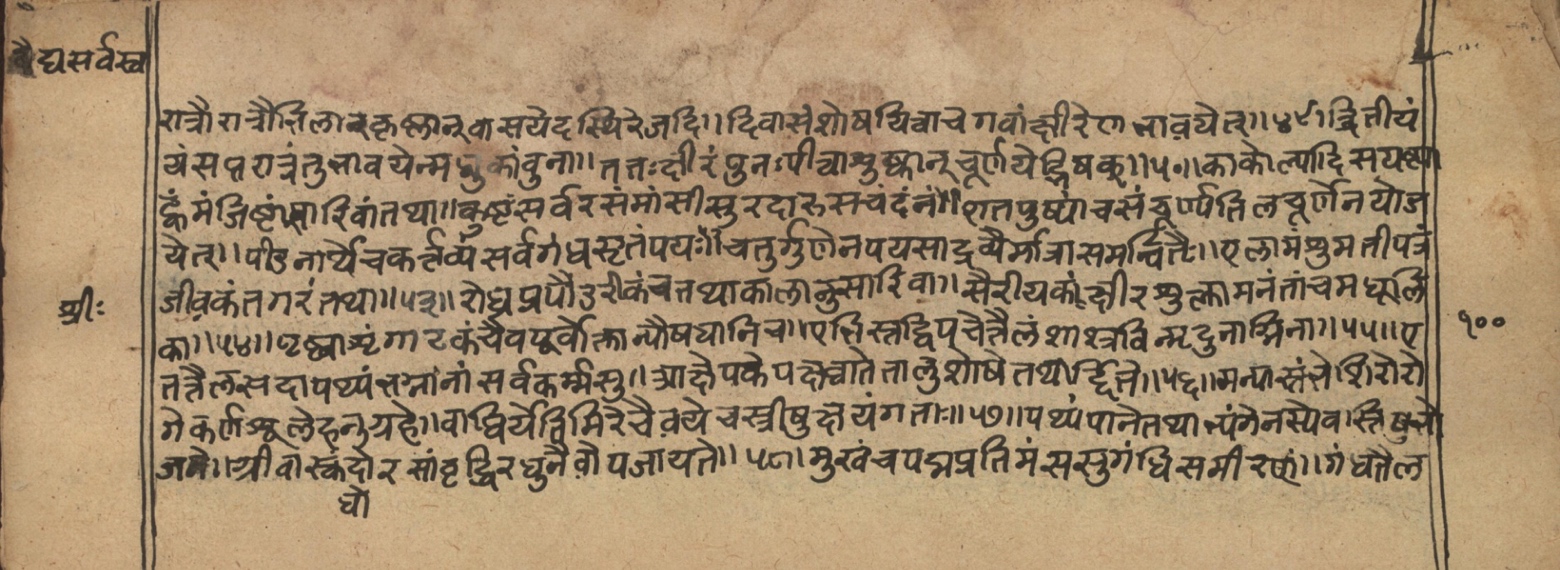 वैद्यसर्वस्व
रात्रौ रात्रौ तिलान् कृष्णान् वासयेदस्थिरे जदि॥ दिवा संशोषयित्वा च गवां क्षीरेण भावयेत्॥४९॥ द्वितीयं
यं सप्तरात्रं तु भावयेन्मधुकांबुना॥ ततः क्षीरं पुनः पीत्वा शुष्कान् चूर्णयेद्भिषक्॥५०॥ काकोल्यादि सयष्ट्या
ह्वं मंजिष्ठां सारिवां तथा॥ कुष्टं सर्वरसं मांसी सुरदारु सचंदनं॥ शतपुष्यां च संचूर्ण्य तिलचूर्णेन योज
येत्॥ पीडनार्थे च कर्त्तव्यं सर्वगंधसृतं पयः॥ चतुर्गुणेन पयसा द्रव्यैर्मात्रासमन्वितैः॥ एलामंशुमतीपत्रं
जीवकं तगरं तथा॥५३॥ रोध्रं प्रपौंडरीकं च तथा कालानुसारिवा॥ सैरीयकं क्षीरशुल्कामनंतां च मधूलि
का॥५४॥ पृष्ट्वा शृंगाटकं चैव पूर्वोक्तान्यौषधानि च॥ एभिस्तद्विपचेत्तैलं शास्त्रविन्मृदुनाग्निना॥५५॥ ए
तत्तैलं सदा पथ्यं भग्नानां सर्वकर्म्मसु॥ आक्षेपके पक्षवाते तालुशोषे तथार्द्दिते॥५६॥ मन्यास्तंभे शिरोरो
गे कर्णशूले हनुग्रहे॥ वाधिर्ये तिमिरे चैव ये च स्त्रीषु क्षयं गताः॥५७॥ पथ्यं पाने तथाभ्यंगे नस्ये वस्तिषु भो
जने॥ ग्रीवास्कंदोरसां वृद्धिरधुनैवोपजायते॥५८॥ मुखं च पद्मप्रतिमं ससुगंधिसमीरणं॥ गंधतैल
धो
श्रीः
१००